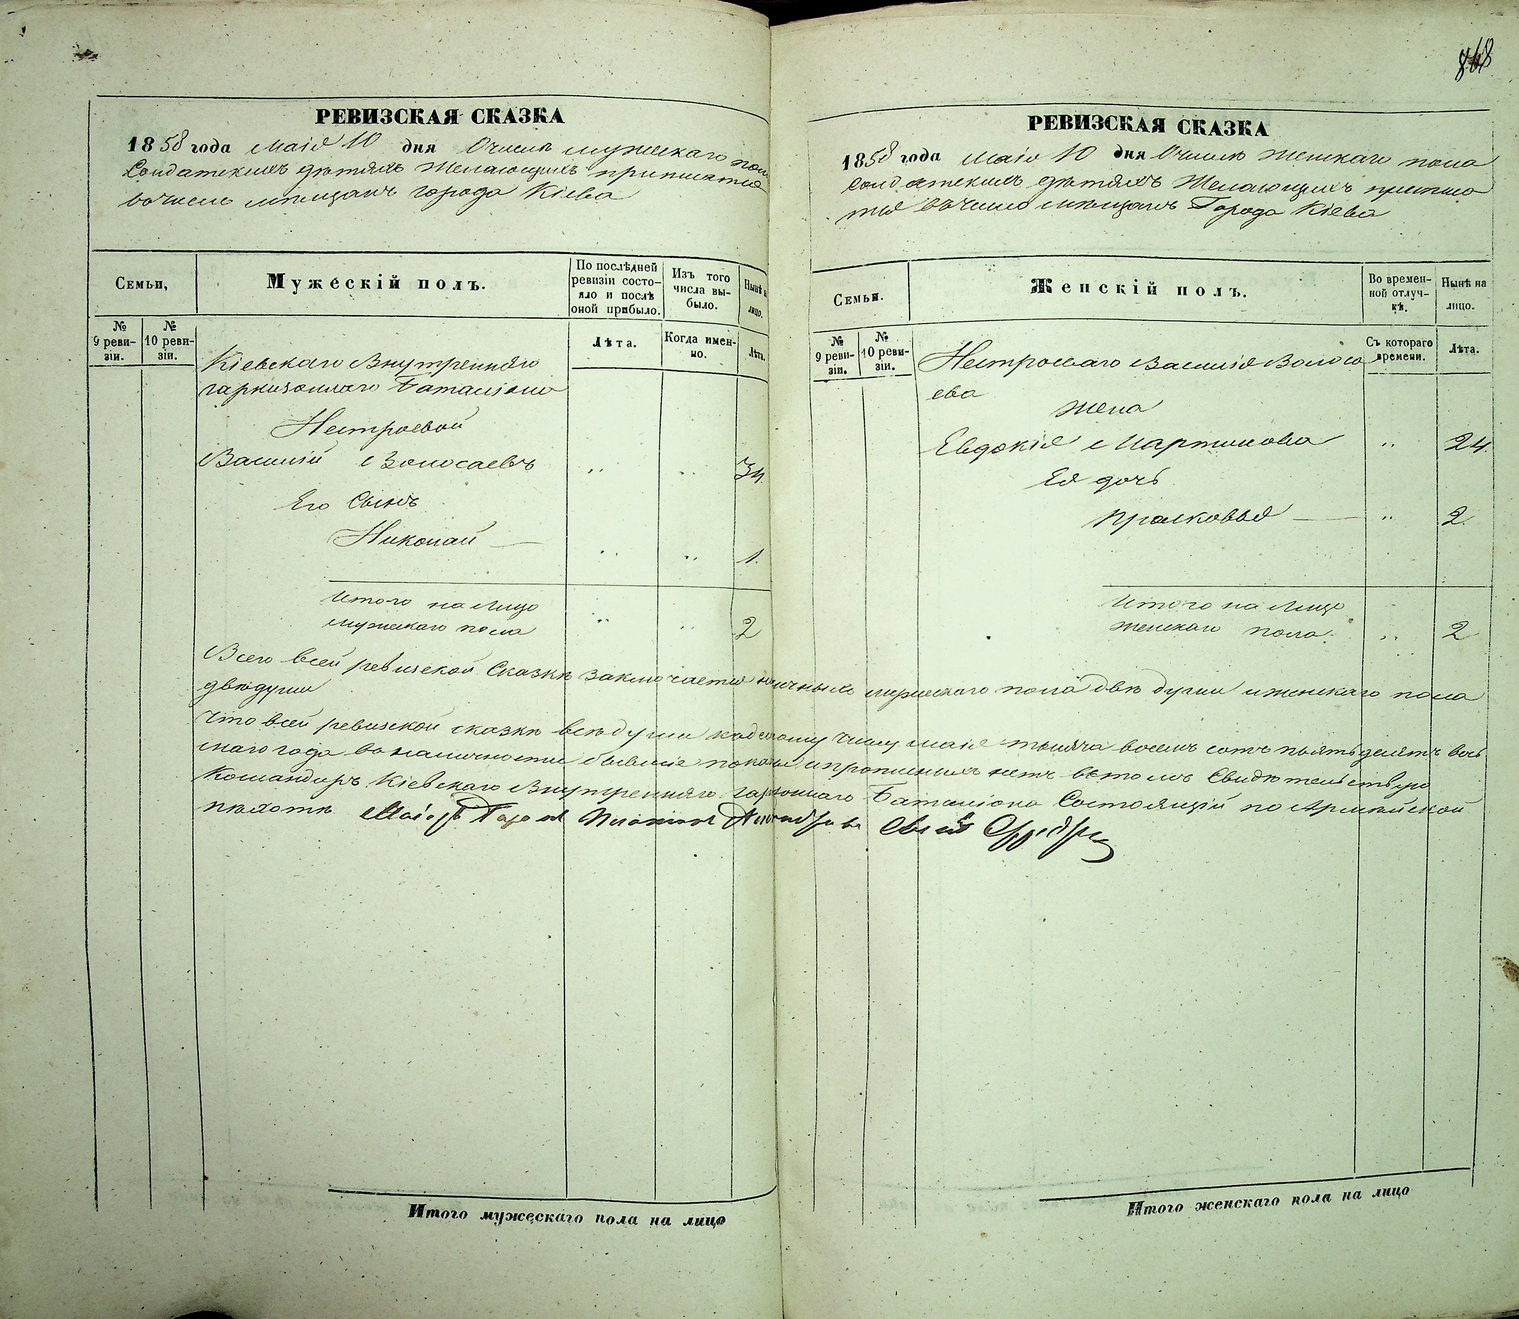 868
РЕВИЗСКАЯ СКАЗКА
1858 года Маія 10 дня О числѣ мужескаго пола
Солдатскихъ дѣтяхъ Желающихъ приписатся
въ число мѣщанъ города Кіева
Семьи,
Мужескій полъ.
По послѣдней ревизіи состояло и послѣ оной прибыло.
Изъ того числа выбыло.
Нынѣ на лицо.
№ 9 ревизіи.
№ 10 ревизіи.
Лѣта.
Когда именно.
Лѣта.
Кіевскаго Внутренняго
гарнизоннаго Баталіона
Нестроевой
Василій Волосаевъ „ „ 34.
Его Сынъ
Николай — „ „ 1.
Итого на Лицо
мужескаго пола „ „ 2
РЕВИЗСКАЯ СКАЗКА
1858 года Маія 10 дня О числѣ женскаго пола
Солдатскихъ дѣтяхъ Желающихъ приписа
тся въ число мѣщанъ Города Кіева
Семьи.
Женскій полъ.
Во временной отлучкѣ.
Нынѣ на лицо.
№ 9 ревизіи.
№ 10 ревизіи.
Съ котораго времени.
Лѣта.
Нестроеваго Василія Волоса
ева
жена
Евдокія Мартинова „ 24.
Ея дочь
Прасковья — „ 2.
Итого на Лицо
женскаго пола. „ 2
Всего всей ревизской Сказкѣ заключается наличныхъ мужескаго пола двѣ души и женскаго пола
двѣ души
Что всей ревизской сказкѣ всѣ души къ десятому числу маія тысяча восемь сотъ пятьдесятъ вось
маго года въ наличности бывшіе показаны и прописныхъ нетъ въ томъ Свидѣтельствую
Командиръ Кіевскаго Внутренняго гарнизоннаго Баталіона Состоящій по Армейской
пѣхотѣ Маіоръ
Итого мужескаго пола на лицо
Итого женскаго пола на лицо